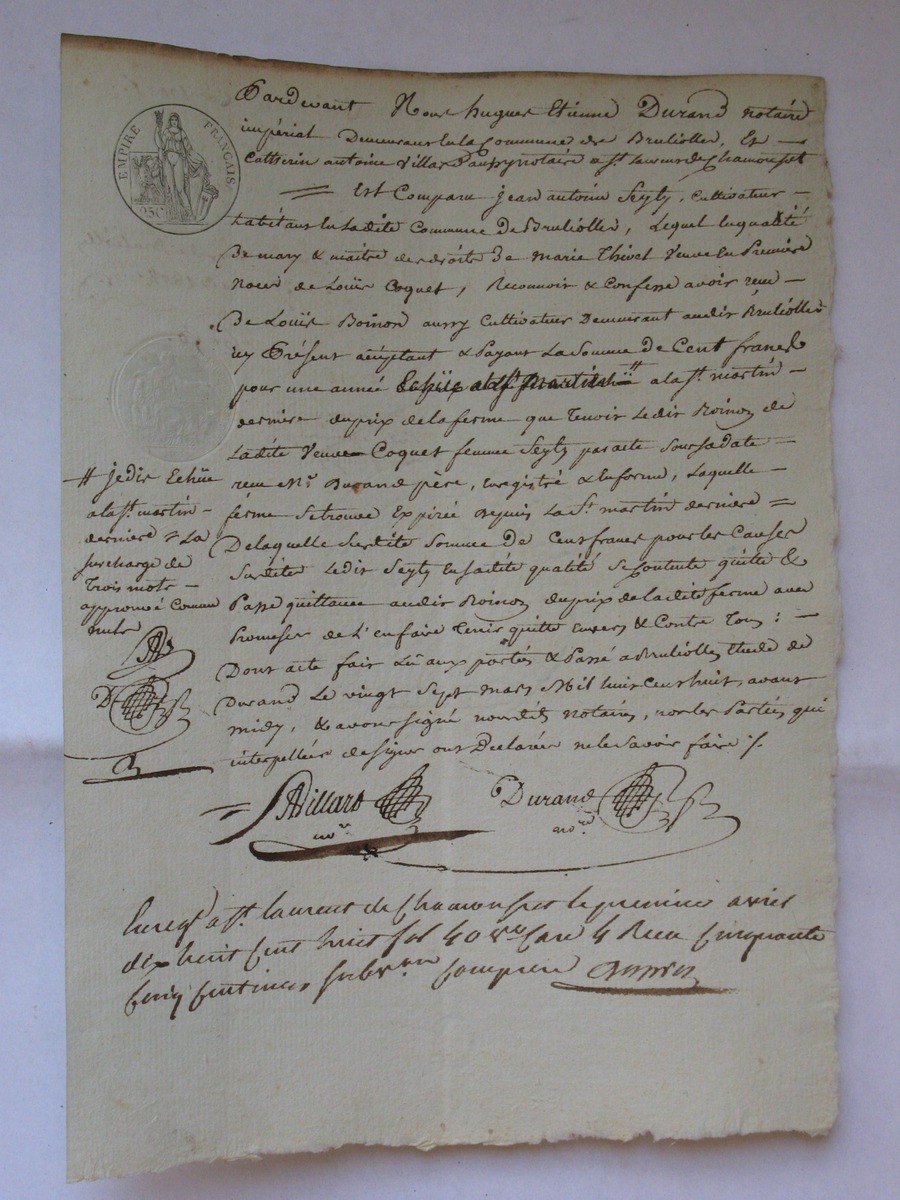 EMPIRE FRANÇAIS
25C
Pardevant Nous hugues Etienne Durand notaire
impérial Demeurant en la Commune de Brulliolles, Et —
Catherin antoine Villard aussy notaire a st. laurent de Chamousset
= Est Comparu jean antoine Seyty, Cultivateur —
habitant en Ladite Commune de Brulliolles, Lequel en qualité
De mary & maitre des droits De marie Thivel Veuve en Premiere
Noces de Loüis Coquet, Reconnoit & Confesse avoir reçu —
De Loüis Boinon aussy Cultivateur Demeurant audit Brulliolles
icy Présent acceptant & Payant La Somme de Cent francs
pour une année # a la st. martin —
derniere du prix de la ferme que Tenoit Ledit Boinon de
Ladite Veuve Coquet femme Seyty par acte Sous sa date —
reçu Me. Durand père, Enregistré & En forme, Laquelle —
ferme Se trouve Expirée Depuis La St. martin derniere =
De laquelle Susdite Somme de Cent francs pour les Causes
Susdites Ledit Seyty En sadite qualité Se Contente quitte &
Passe quittance audit Boinon du prix de ladite ferme avec
Promesse de L'en faire Tenir quitte Envers & Contre Tous : —
Dont acte fait Lû aux parties & Passé a Brulliolles Etude de
Durand Le vingt Sept mars Mil huit Cent huit, avant
midy, & avons signé nousdits notaires, non les Parties qui
interpellées de signer ont Déclarées ne le Savoir faire ./.
# je dis Echüe
a la st. martin —
derniere = La
surcharge de
Trois mots —
approuvé Comme
nuls
AV
D
= AVillard Durand
nore. nore.
Enregé a st. laurent de chamousset le premier avril
dix huit cent huit fol 40 vo Case 4 Reçu Cinquante
Cinq centimes subvon comprise